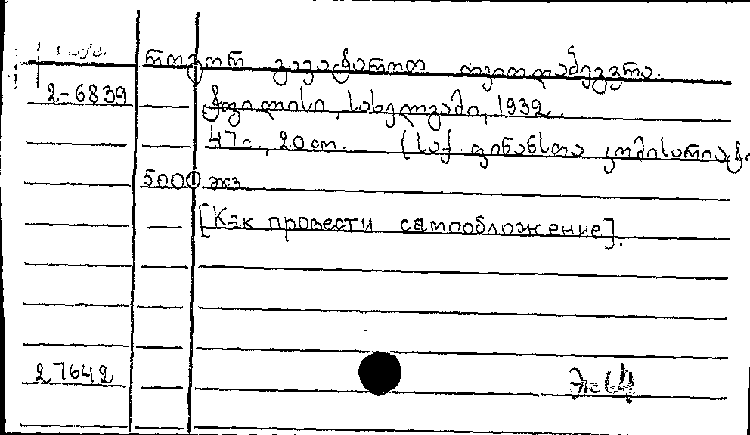 როგორ გავატაროთ თვითდაბეგვრა.
2-6839 ტფილისი, სახელგამი, 1932.
47 გ., 20 სთ. (საქ. ფინანსთა კომისარიატ
5000 экз
[Как провести самообложение].
27642